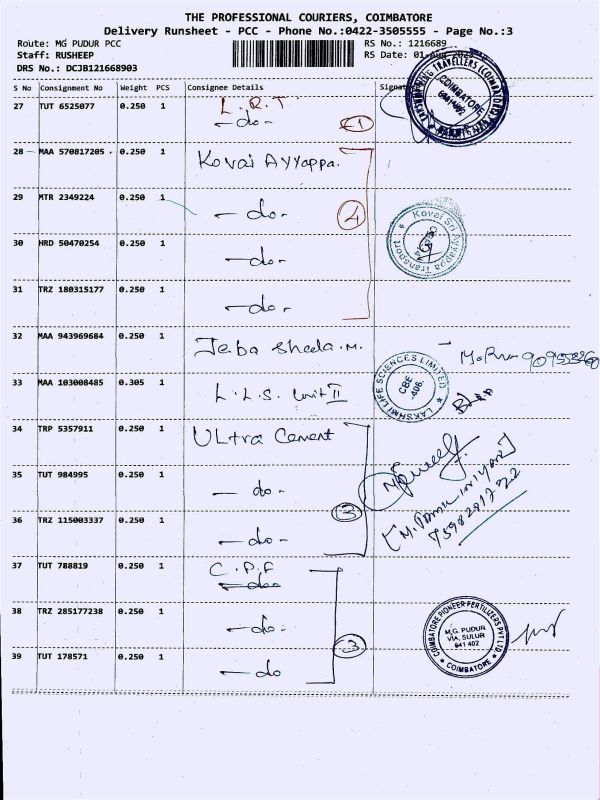 THE PROFESSIONAL COURIERS, COIMBATORE
Delivery Runsheet - PCC - Phone No.:0422-3505555 - Page No.:3
Route: MG PUDUR PCC RS No.: 1216689
Staff: RUSHEEP RS Date: 01-Aug
DRS No.: DCJB121668903
S No Consignment No Weight PCS Consignee Details Signat
27 TUT 6525077 0.250 1 L.R.T
-do- 1
28 MAA 570817205 0.250 1 Kovai Ayyappa.
29 MTR 2349224 0.250 1 -do- 4
30 HRD 50470254 0.250 1 -do-
31 TRZ 180315177 0.250 1 -do-
32 MAA 943969684 0.250 1 Jeba Sheela.M.
33 MAA 103008485 0.305 1 L.L.S. Unit II
34 TRP 5357911 0.250 1 ULtra Cement
35 TUT 984995 0.250 1 -do-
36 TRZ 115003337 0.250 1 -do- 3
37 TUT 788819 0.250 1 C.P.F
-do-
38 TRZ 285177238 0.250 1 -do- 3
39 TUT 178571 0.250 1 -do
COIMBATORE
Kovai Sri Ayyappa Transport
LAKSHMI LIFE SCIENCES LIMITED
CBE
-406.
COIMBATORE PIONEER FERTILIZERS PVT LTD.
M.G. PUDUR
VIA, SULUR
641 402
COIMBATORE